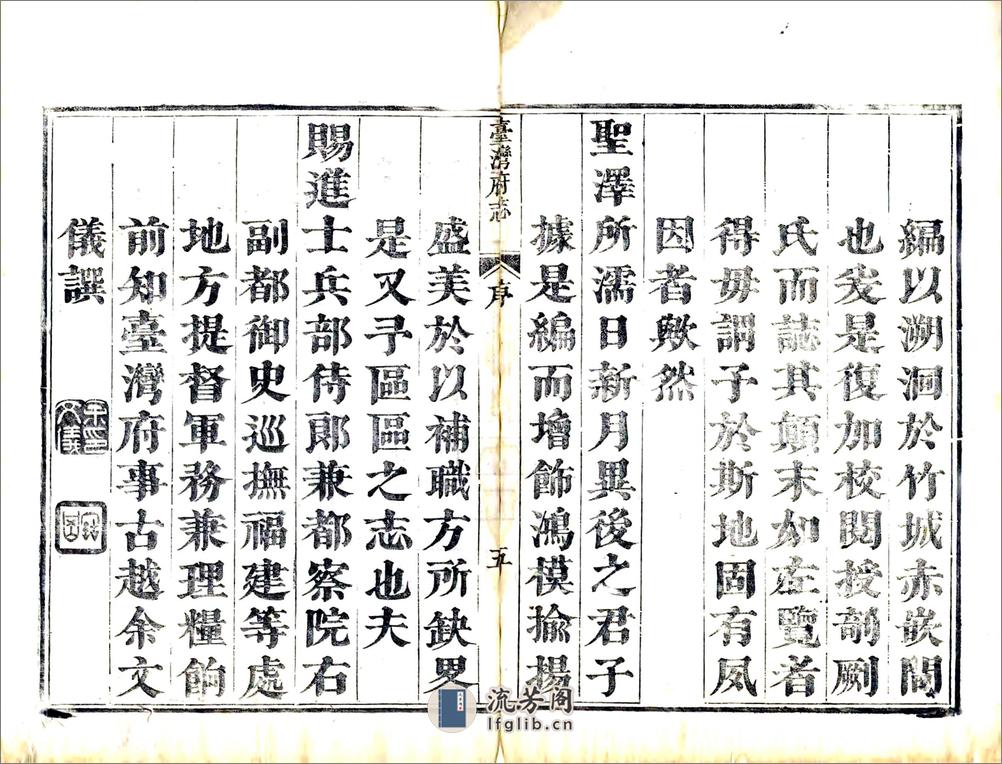 編以溯洄於竹城赤嵌間
也爰是復加校閱授剞劂
氏而誌其顛末如左覽者
得毋謂予於斯地固有夙
因者歟然
聖澤所濡日新月異後之君子
據是編而增飾鴻模揄揚
臺灣府志
序
五
盛美於以補職方所缺畧
是又予區區之志也夫
賜進士兵部侍郎兼都察院右
副都御史巡撫福建等處
地方提督軍務兼理糧餉
前知臺灣府事古越余文
儀譔
流芳阁
lfglib.cn